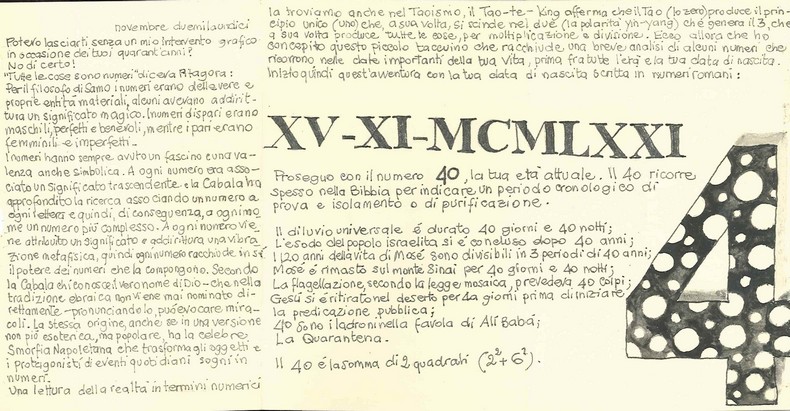 novembre duemilaundici
Potevo lasciarti senza un mio intervento grafico
in occasione dei tuoi quarant'anni?
No di certo!
"Tutte le cose sono numeri" diceva Pitagora:
Per il filosofo di Samo i numeri erano delle vere e
proprie entità materiali, alcuni avevano addirit-
tura un significato magico. I numeri dispari erano
maschili, perfetti e benevoli, mentre i pari erano
femminili e imperfetti.
I numeri hanno sempre avuto un fascino e una va-
lenza anche simbolica. A ogni numero era asso-
ciato un significato trascendente e la Cabala ha
approfondito la ricerca associando un numero a
ogni lettera e quindi, di conseguenza, a ogni no
me un numero più complesso. A ogni numero vie
ne attribuito un significato e addirittura una vibra
zione metafisica, quindi ogni numero racchiude in sé
il potere dei numeri che la compongono. Secondo
la Cabala chi conosce il vero nome di Dio - che nella
tradizione ebraica non viene mai nominato di-
rettamente - pronunciandolo, può evocare mira-
coli. La stessa origine, anche se in una versione
non più esoterica, ma popolare, ha la celebre
Smorfia Napoletana che trasforma gli oggetti e
i protagonisti di eventi quotidiani sogni in
numeri.
Una lettura della realtà in termini numerici
la troviamo anche nel Taoismo, il Tao-te-King afferma che il Tao (lo zero) produce il prin-
cipio unico (uno) che, a sua volta, si scinde nel due (la polarità yin-yang) che genera il 3, che
a sua volta produce tutte le cose, per multiplicazione e divisione. Ecco allora che ho
concepito questo piccolo taccuino che racchiude una breve analisi di alcuni numeri che
ricorrono nelle date importanti della tua vita, prima fra tutte l'età e la tua data di nascita.
Inizio quindi quest'avventura con la tua data di nascita scritta in numeri romani:
XV-XI-MCMLXXI
Proseguo con il numero 40, la tua età attuale. Il 40 ricorre
spesso nella Bibbia per indicare un periodo cronologico di
prova e isolamento o di purificazione.
Il diluvio universale é durato 40 giorni e 40 notti;
L'esodo del popolo israelita si é concluso dopo 40 anni;
I 120 anni della vita di Mosé sono divisibili in 3 periodi di 40 anni;
Mosé é rimasto sul monte Sinai per 40 giorni e 40 notti;
La flagellazione, secondo la legge mosaica, prevedeva 40 colpi;
Gesù si é ritirato nel deserto per 40 giorni prima di iniziare
la predicazione pubblica;
40 sono i ladroni nella favola di Alì Babà;
La Quarantena.
Il 40 é la somma di 2 quadrati (2²+6²).
4